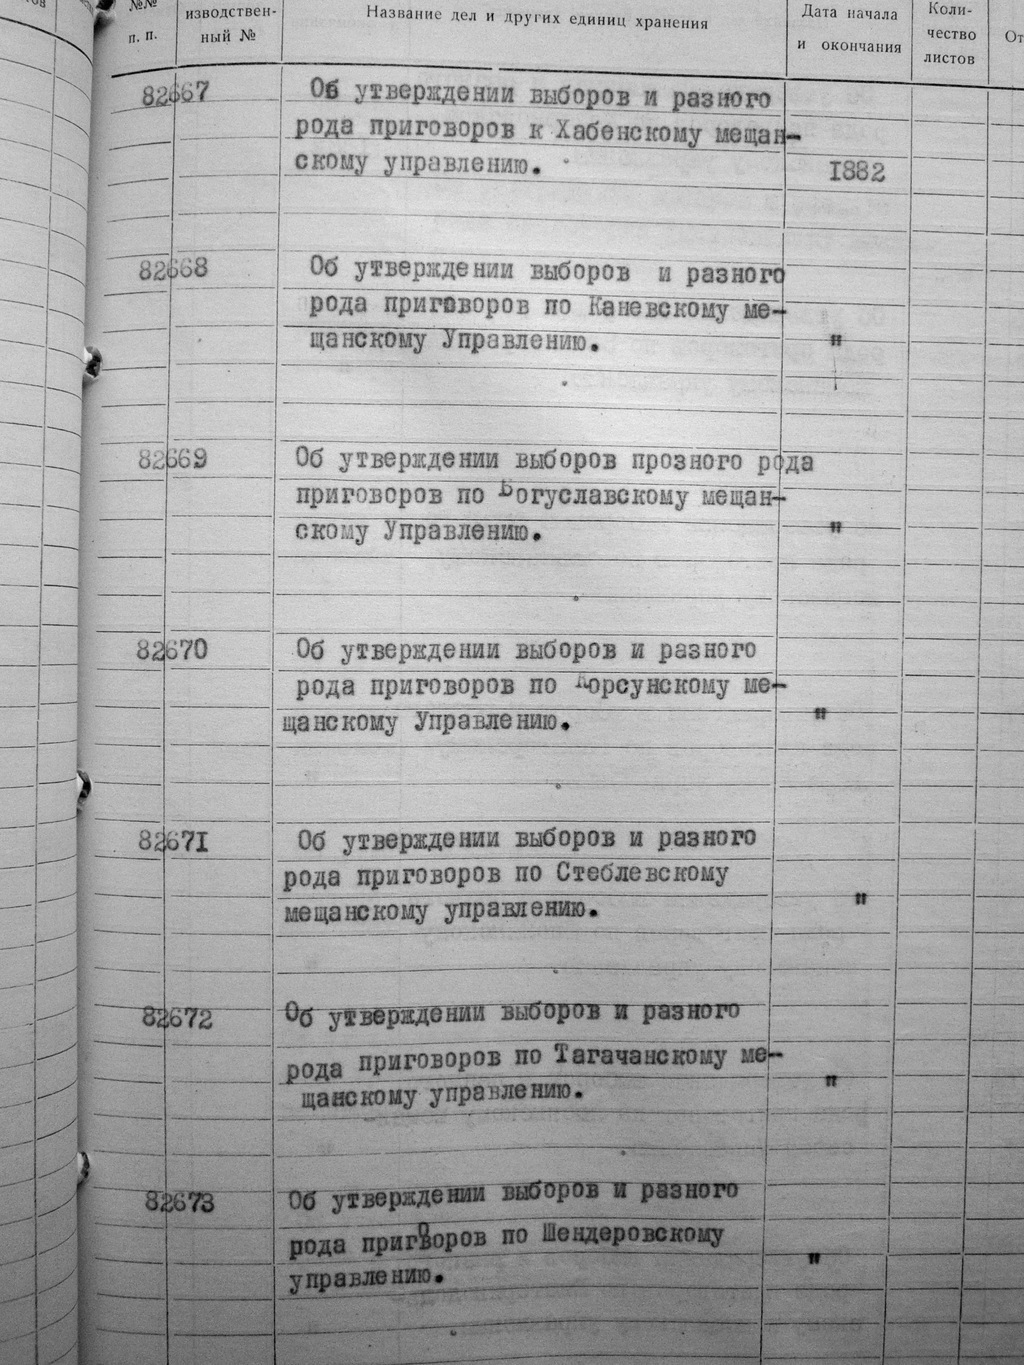 №№
п. п.
изводствен-
ный №
Название дел и других единиц хранения
Дата начала
и окончания
Коли-
чество
листов
От
82667
Об утверждении выборов и разного
рода приговоров к Хабенскому мещан-
скому управлению.
1882
82668
Об утверждении выборов и разного
рода приговоров по Каневскому ме-
щанскому Управлению.
"
82669
Об утверждении выборов прозного рода
приговоров по Богуславскому мещан-
скому Управлению.
"
82670
Об утверждении выборов и разного
рода приговоров по Корсунскому ме-
щанскому Управлению.
"
82671
Об утверждении выборов и разного
рода приговоров по Стеблевскому
мещанскому управлению.
"
82672
Об утверждении выборов и разного
рода приговоров по Тагачанскому ме-
щанскому управлению.
"
82673
Об утверждении выборов и разного
рода приговоров по Шендеровскому
управлению.
"